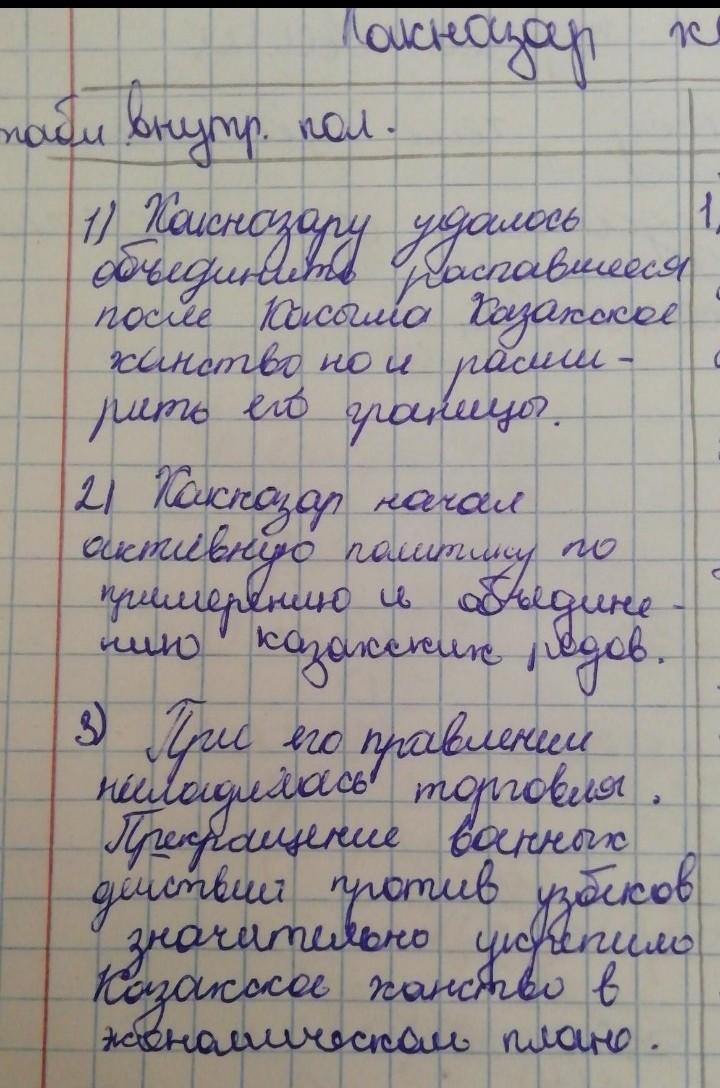 Хакназар х
табл внутр. пол.
1) Хакназару удалось
объединить распавшееся
после Касыма Казахское
ханство но и расши-
рить его границы.
2) Хакназар начал
активную политику по
примерению и объедине-
нию казахских родов.
3) При его правлении
наладилась торговля.
Прекращение военных
действий против узбеков
значительно укрепило
Казахское ханство в
экономическом плане.
1)